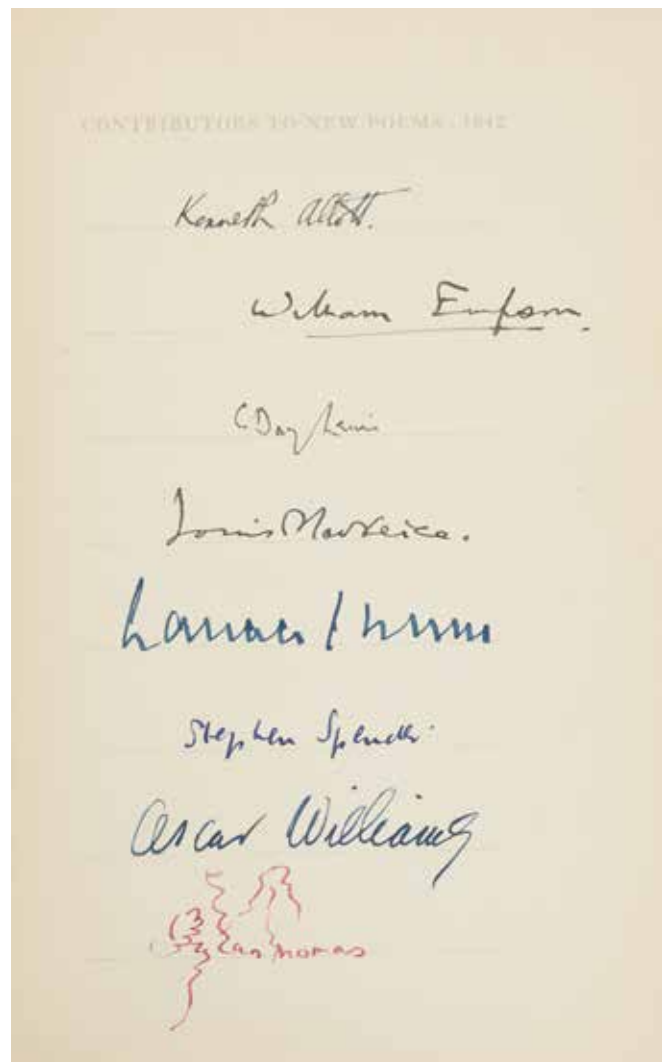 CONTRIBUTORS TO NEW POEMS: 1942
Kenneth Allott.
William Empson.
C Day Lewis
Louis MacNeice.
Stephen Spender.
Oscar Williams
Dylan Thomas